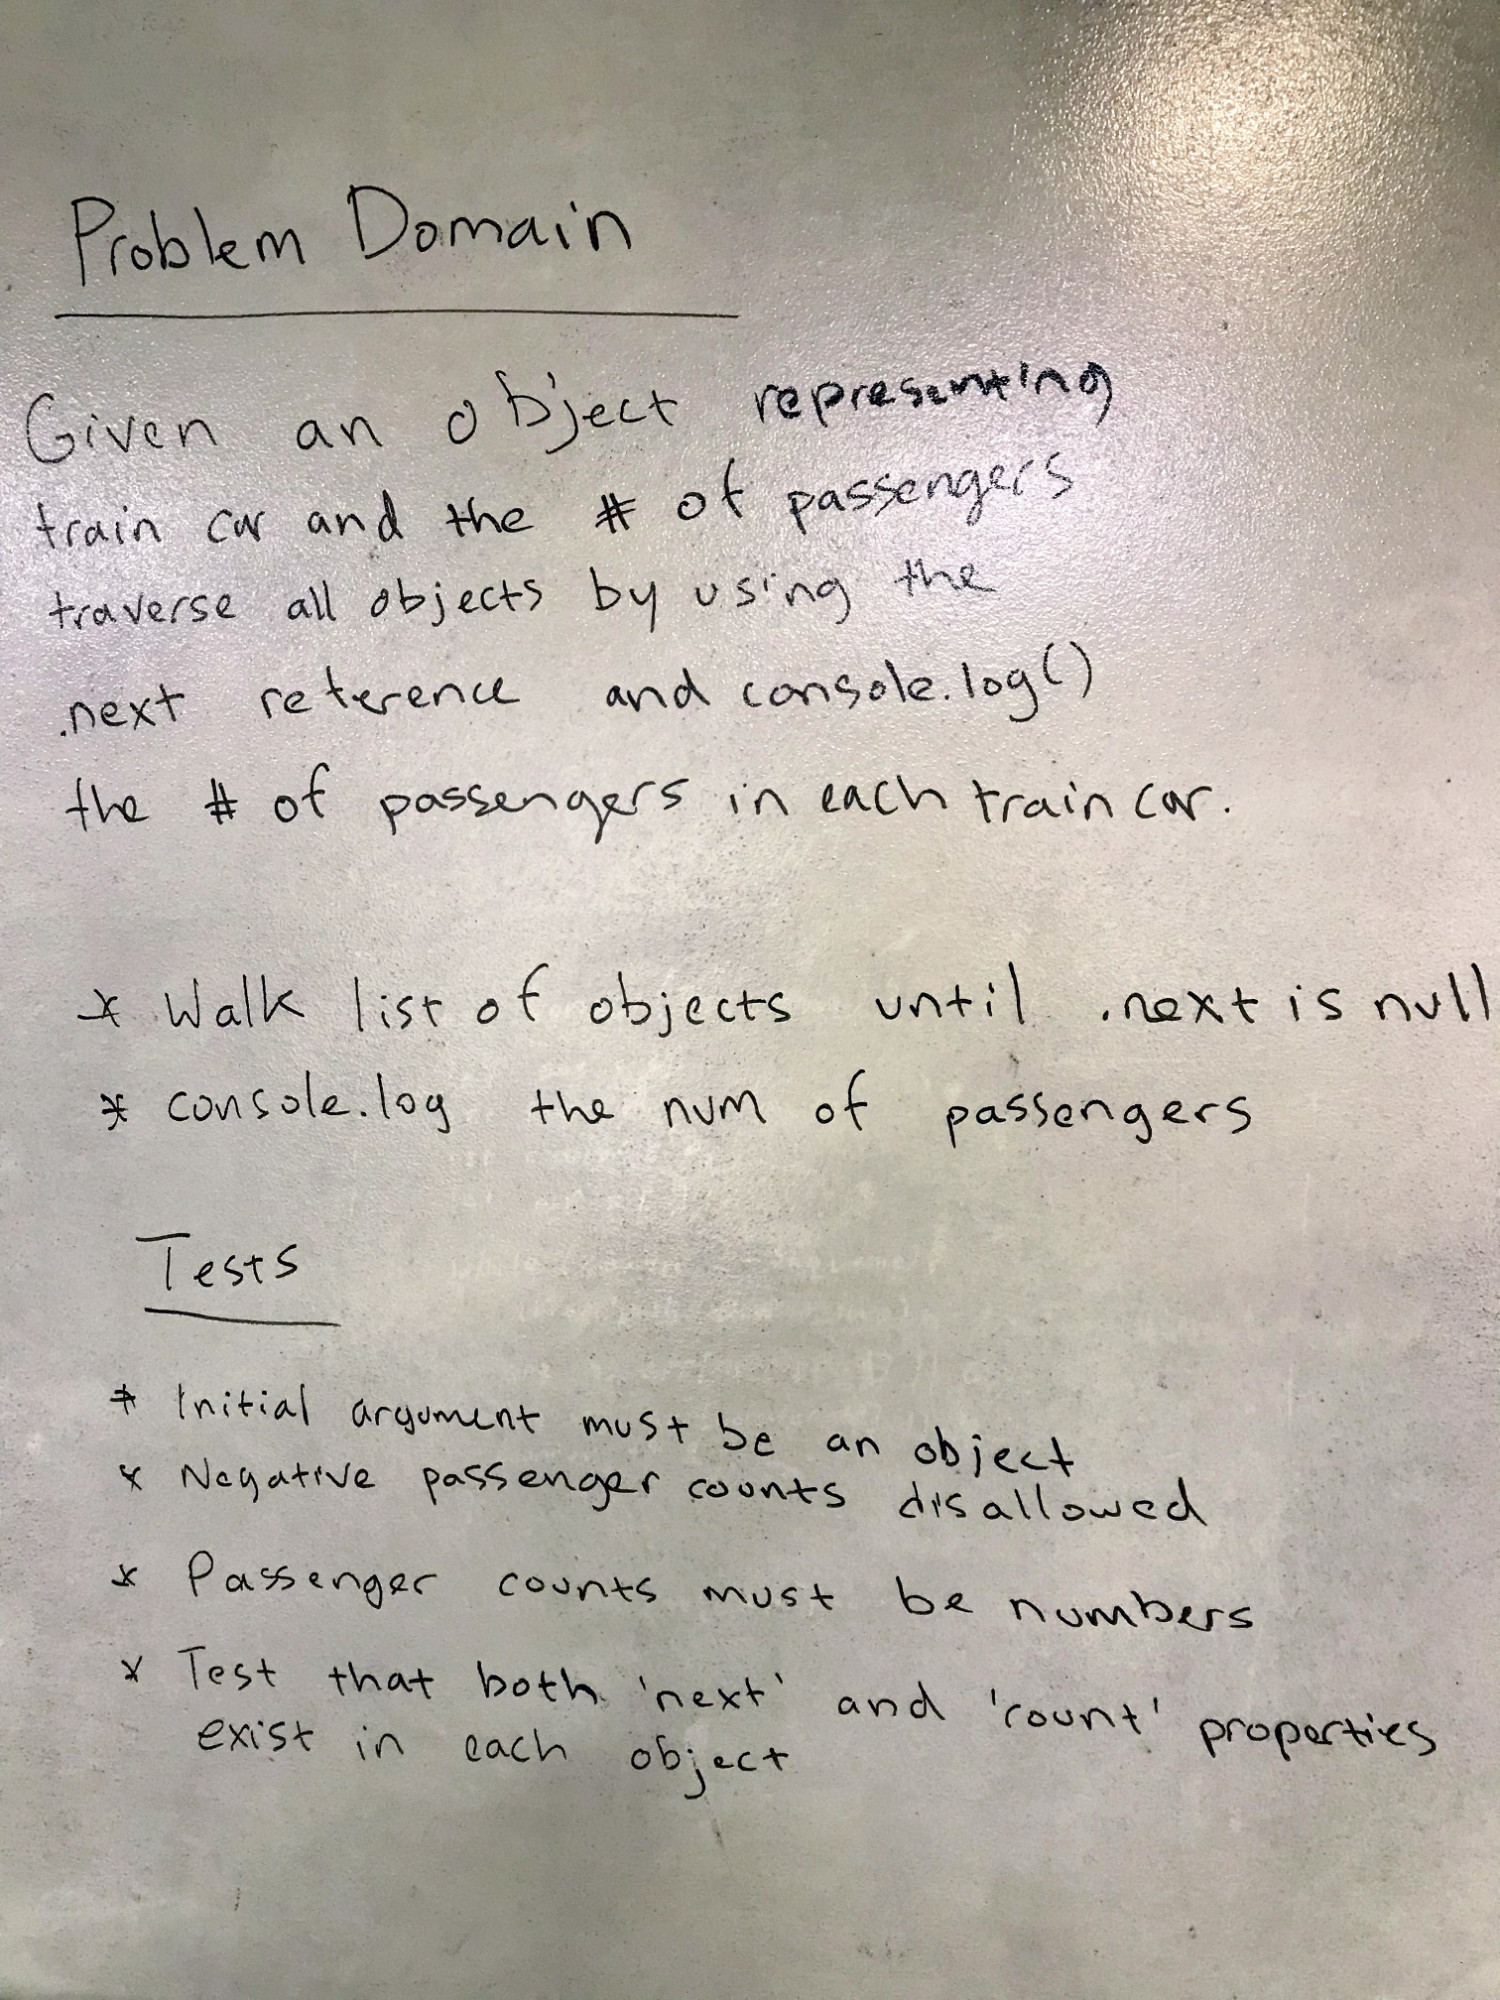 Problem Domain
Given an object representing
train car and the # of passengers
traverse all objects by using the
.next reference and console.log()
the # of passengers in each train car.
* Walk list of objects until .next is null
* console.log the num of passengers
Tests
* Initial argument must be an object
* Negative passenger counts disallowed
* Passenger counts must be numbers
* Test that both 'next' and 'count' properties
exist in each object